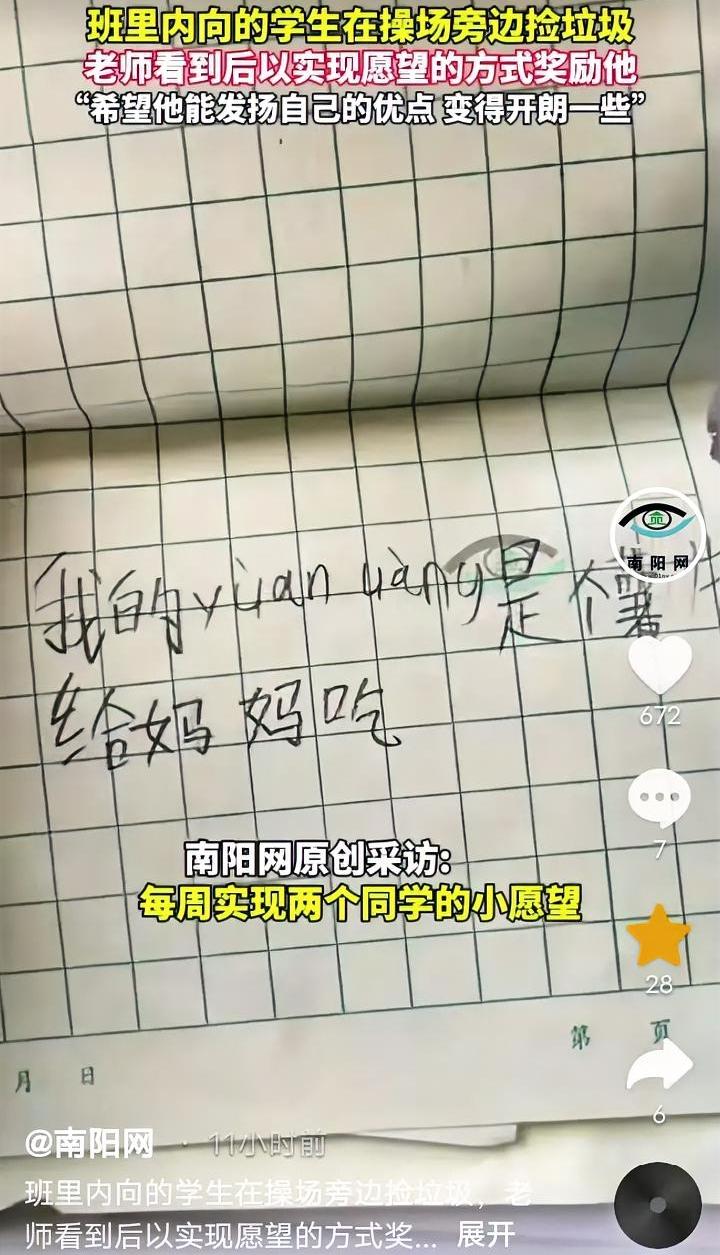 班里内向的学生在操场旁边捡垃圾
老师看到后以实现愿望的方式奖励他
“希望他能发扬自己的优点 变得开朗一些”
我的yuan uàng是个薯
给妈妈吃
南阳网
672
7
南阳网原创采访:
每周实现两个同学的小愿望
28
第 页
月 日
6
@南阳网 · 11小时前
班里内向的学生在操场旁边捡垃圾，老
师看到后以实现愿望的方式奖... 展开